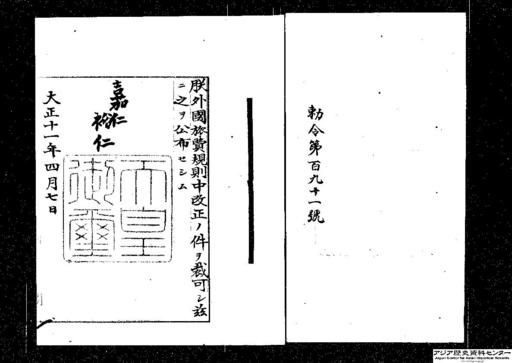 勅令第百九十一號
朕外國旅費規則中改正ノ件ヲ裁可シ茲
ニ之ヲ公布セシム
嘉仁
裕仁
天皇
御璽
大正十一年四月七日
アジア歴史資料センター
Japan Center for Asian Historical Records